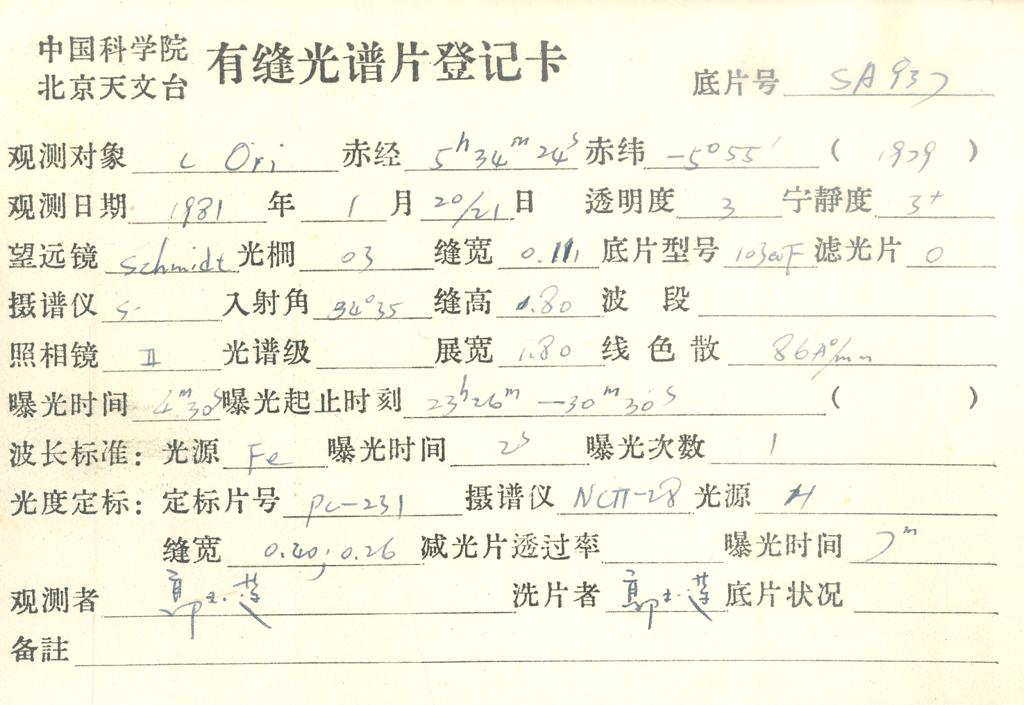 中国科学院
北京天文台
有缝光谱片登记卡
底片号 SA937
观测对象 ι Ori 赤经 5h34m24s 赤纬 -5°55′ ( 1979 )
观测日期 1981 年 1 月 20/21 日 透明度 3 宁静度 3+
望远镜 Schmidt 光栏 03 缝宽 0.111 底片型号 103aoF 滤光片 0
摄谱仪 S- 入射角 34°35 缝高 1.80 波段
照相镜 II 光谱级 展宽 1.80 线色散 86A°/mm
曝光时间 4m30s 曝光起止时刻 23h26m—30m30s ( )
波长标准: 光源 Fe 曝光时间 2s 曝光次数 1
光度定标: 定标片号 PC-231 摄谱仪 光源 H
缝宽 0.20; 0.26 减光片透过率 曝光时间 7m
观测者 洗片者 底片状况
备註